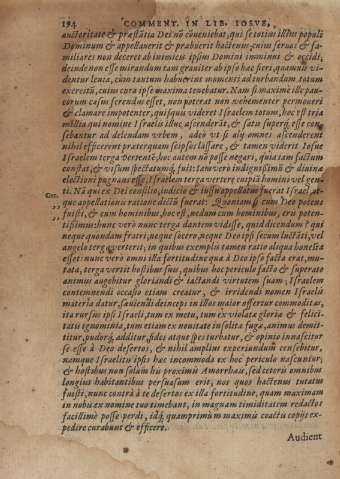 194 COMMENT. IN LIB. IOSVE,
auctoritate & præstãtia Dei nõ cõueniebat, qui se totius illius populi
Dominum & appellauerit & præbuerit hactenus: cuius seruos & fa-
miliares non deceret ab inimicis ipsius Domini imminui & occidi,
deinde non esse mirandum tam grauiter ab ipso hæc fieri, quamuis vi-
dentur leuia, cùm tantum habuerint momenti ad turbandum totum
exercitũ, cuius cura ipse maxima tenebatur. Nam si maximè ille pau-
corum casus ferendus esset, non poterat non vehementer permoueri
& clamare impotenter, quisquis viderit Israelem totum, hoc est tria
millia qui nomine Israelis iduc ascenderãt, & satis superq́; esse cen-
sebantur ad delendam vrbem, adeò vt si alij omnes ascenderent
nihil efficerent præterquam seipsos lassare, & tamen viderit Iosue
Israelem terga vertentẽ, hoc autem nõ posse negari, quia iam factum
constat, & visum spectatumq́; fuit: iam verò indignissimũ & diuinæ
electioni pugnans esse, Israelem terga vertere cuipiã homini vel gen-
ti. Nã qui ex Dei consilio, indicio & iussu appellatus fuerat Israel, at-
Gen. que appellationis ratione dictũ fuerat: Quoniam si cum Deo potens
fuisti, & cum hominibus, hoc est, nedum cum hominibus, eris poten-
tissimus: hunc verò nunc terga dantem vidisse, quid dicendum? qui
neque quondam fratri, neque socero, neque Deo ipsi secum luctãti, vel
angelo terga verterit, in quibus exemplis tamen ratio aliqua honesta
esset: nunc verò omni illa fortitudine quæ à Deo ipso facta erat, mu-
tata, terga vertit hostibus suis, quibus hoc periculo facto & superato
animus augebitur gloriandi & iactandi virtutem suam, Israelem
contemnendi occasio etiam creatur, & irridendi nomen Israelis
materia datur, sæuiendi deinceps in illos maior offertur commoditas,
ita rursus ipsi Israeli, tum ex metu, tum ex violata gloria & felici-
tatis ignominia, tum etiam ex nouitate insolita fugæ, animus demit-
titur, pudorq́; additur, fides atque spes turbatur, & opinio innascitur
se esse à Deo desertos, & nihil amplius experiundum censebitur,
namque Israelitis ipsis hæc incommoda ex hoc periculo nascuntur,
& hostibus non solum his proximis Amorrhæis, sed ceteris omnibus
longius habitantibus persuasum erit, nos quos hactenus tutatus
fuisti, nunc contra à te desertos ex illa fortitudine, quam maximam
in nobis ex nomine tuo timebant, in magnam timiditatem redactos
facillimè posse perdi, idq́; quamprimùm maximis coactis copijs ex-
pedire curabunt & efficere.
Audient